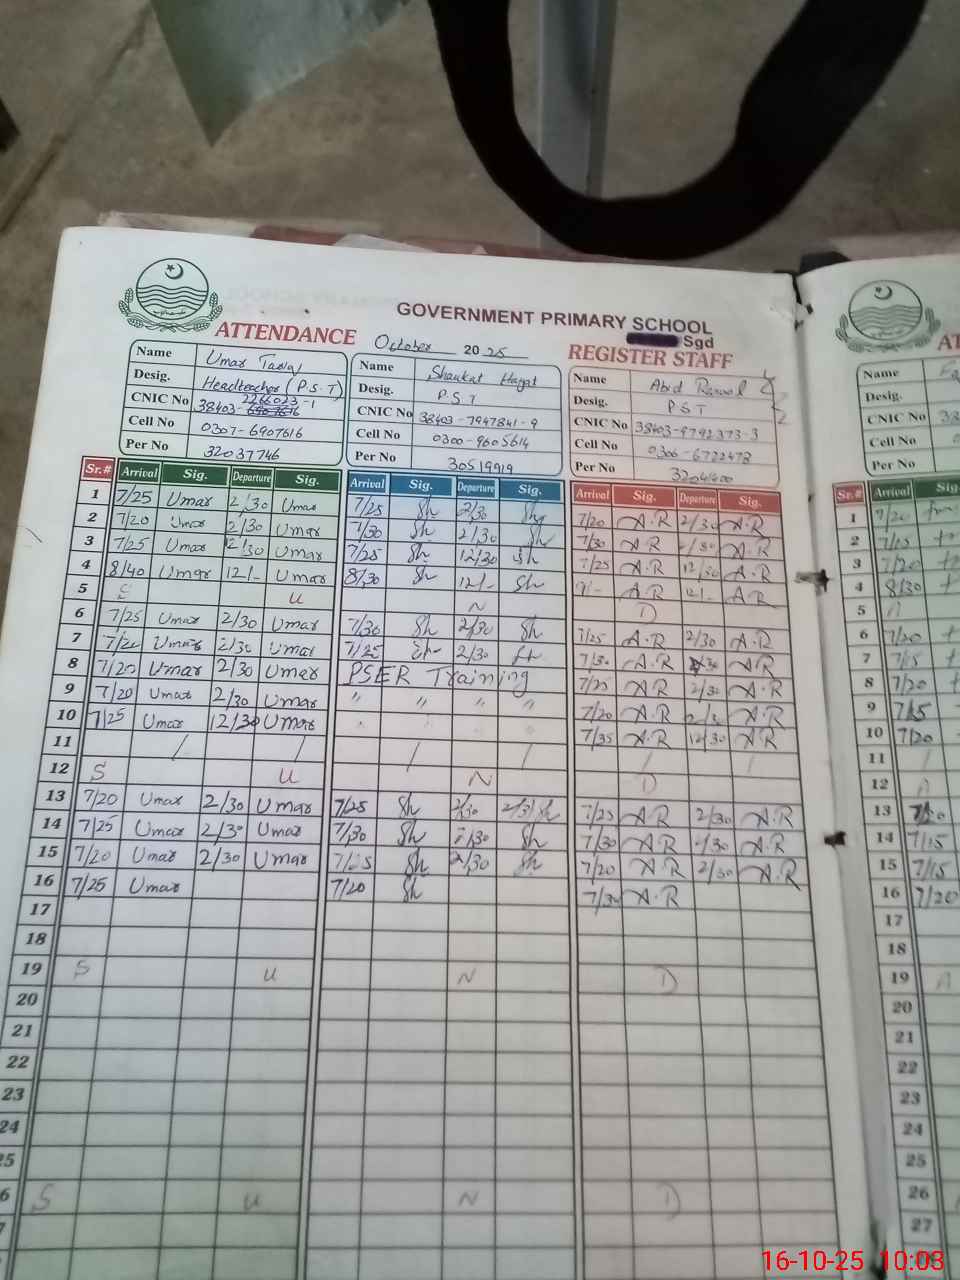 GOVERNMENT PRIMARY SCHOOL
Sgd
ATTENDANCE October 2025 REGISTER STAFF
Name Umar Tariq
Desig. Headteacher (P.S.T)
CNIC No 38403-2266023-1
Cell No 0307-6907616
Per No 32037746
Name Shaukat Hayat
Desig. P.S.T
CNIC No 38403-7947841-9
Cell No 0300-9605614
Per No 30519919
Name Abid Rasool
Desig. PST
CNIC No 38403-9792373-3
Cell No 0306-6722478
Per No
Sr.# Arrival Sig. Departure Sig. Arrival Sig. Departure Sig. Arrival Sig. Departure Sig.
1 7/25 Umar 2/30 Umar 7/25 Sh 2/30 Sh 7/20 A.R 2/30 A.R
2 7/20 Umar 2/30 Umar 7/30 Sh 2/30 Sh 7/30 A.R 2/30 A.R
3 7/25 Umar 12/30 Umar 7/25 Sh 12/30 Sh 7/25 A.R 12/30 A.R
4 8/40 Umar 12/- Umar 8/30 Sh 12/- Sh 9/- A.R 12/- A.R
5 S U N D
6 7/25 Umar 2/30 Umar 7/30 Sh 2/30 Sh 7/25 A.R 2/30 A.R
7 7/20 Umar 2/30 Umar 7/25 Sh 2/30 Sh 7/30 A.R 2/30 A.R
8 7/20 Umar 2/30 Umar PSER Training 7/25 A.R 2/30 A.R
9 7/20 Umar 2/30 Umar " " " " 7/20 A.R 2/30 A.R
10 7/25 Umar 12/30 Umar 7/35 A.R 12/30 A.R
11 / / / / / /
12 S U N D
13 7/20 Umar 2/30 Umar 7/25 Sh 2/30 Sh 7/25 A.R 2/30 A.R
14 7/25 Umar 2/30 Umar 7/30 Sh 2/30 Sh 7/30 A.R 2/30 A.R
15 7/20 Umar 2/30 Umar 7/25 Sh 2/30 Sh 7/20 A.R 2/30 A.R
16 7/25 Umar 7/20 Sh 7/30 A.R
17
18
19 S U N D
20
21
22
23
24
25
26 S U N D
27
Name
Desig.
CNIC No
Cell No
Per No
Sr.# Arrival Sig.
1 7/20
2 7/15
3 7/20
4 8/30
5 A
6 7/20
7 7/15
8 7/20
9 7/15
10 7/20
11 /
12 A
13 7/20
14 7/15
15 7/15
16 7/20
17
18
19 A
20
21
22
23
24
25
26
27
16-10-25 10:03